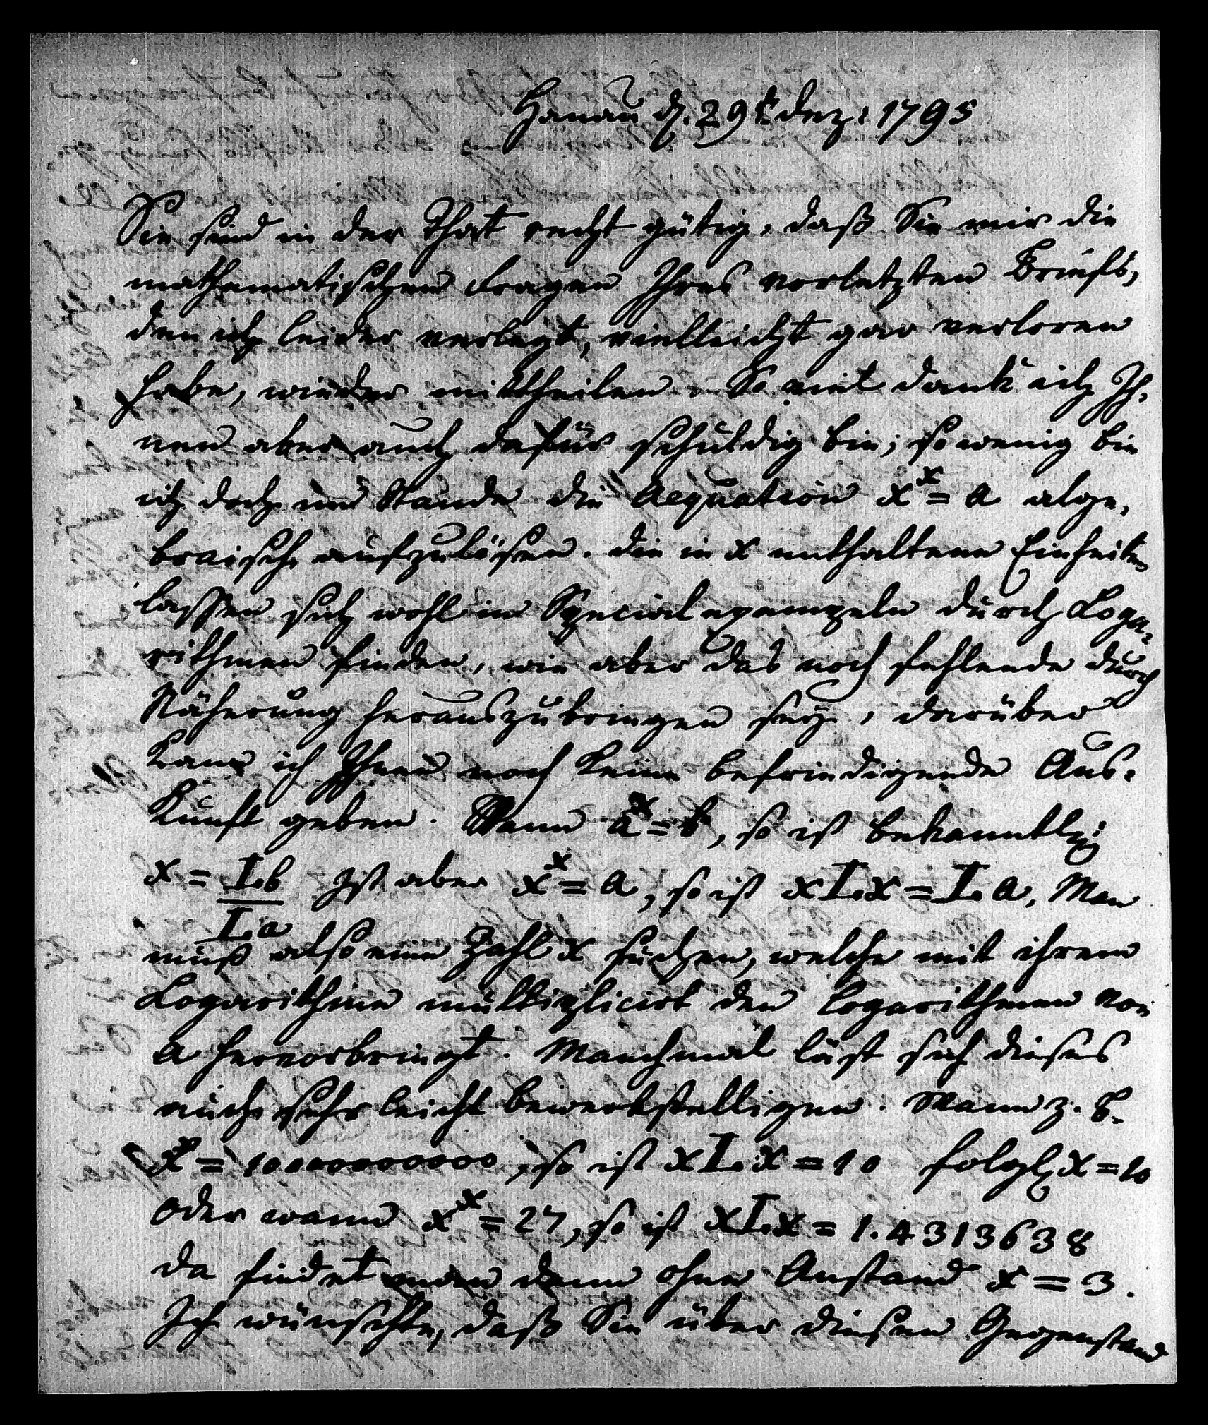 Hanau d. 29t. dez: 1795
Sie sind in der That recht gütig, daß Sie mir die
mathematischen Fragen Ihres vorletzten Briefs,
den ich leider verlegt, vielleicht gar verloren
habe, wieder mittheilen. So viel dank ich Ih-
nen aber auch dafür schuldig bin, so wenig bin
ich doch im Stande die Aequation x^x = a alge-
braisch aufzulösen. die in x enthaltene Einheiten
lassen sich wohl in Specialexempeln durch Loga-
rithmen finden, wie aber das noch fehlende durch
Näherung herauszubringen sey, darüber
kann ich Ihnen noch keine befriedigende Aus-
kunft geben. Wann a^x = b, so ist bekanntlich
x = L.b/L.a Ist aber x^x = a, so ist xL.x = L.a. Man
muß also eine Zahl x suchen, welche mit ihrem
Logarithme multiplicirt den Logarithmen von
a hervorbringt. Manchmal läst sich dieses
auch sehr leicht bewerkstelligen. Wann z. B.
x^x = 10000000000, so ist xL.x = 10 folgl. x = 10
oder wann x^x = 27, so ist xL.x = 1.4313638
da findet man dann ohne Anstand x = 3.
Ich wünschte, daß Sie über diesen Gegenstand